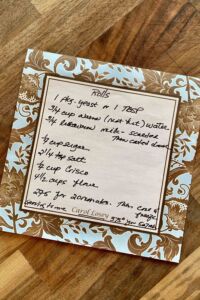 Rolls
1 pkg. yeast or 1 TBSP
3/4 cup warm (not hot) water
3/4 cup milk - scalded
Then cooled down
1/4 cup sugar
2 1/4 tsp salt
1/4 cup Crisco
4 1/2 cups flour
275 for 20 minutes. Then cool &
freeze
Carol Losey